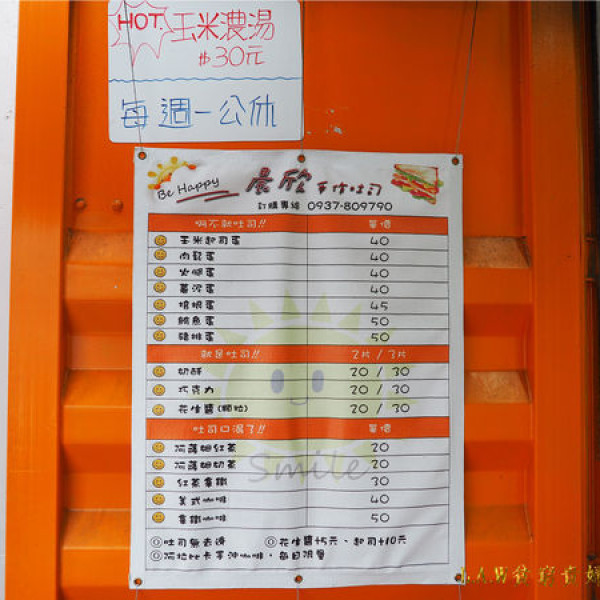 HOT. 玉米濃湯
$30元
每週一公休
Be Happy 晨欣 手作吐司
訂購專線 0937-809790
啊不就吐司!! 單價
玉米起司蛋 40
肉鬆蛋 40
火腿蛋 40
薯泥蛋 40
培根蛋 45
鮪魚蛋 50
豬排蛋 50
就是吐司!! 2片 / 3片
奶酥 20 / 30
巧克力 20 / 30
花生醬(顆粒) 20 / 30
吐司口渴了!! 單價
阿薩姆紅茶 20
阿薩姆奶茶 20
紅茶拿鐵 30
美式咖啡 40
拿鐵咖啡 50
Smile
◎吐司無去邊 ◎花生醬+5元、起司+10元
◎阿拉比卡手沖咖啡，每日限量